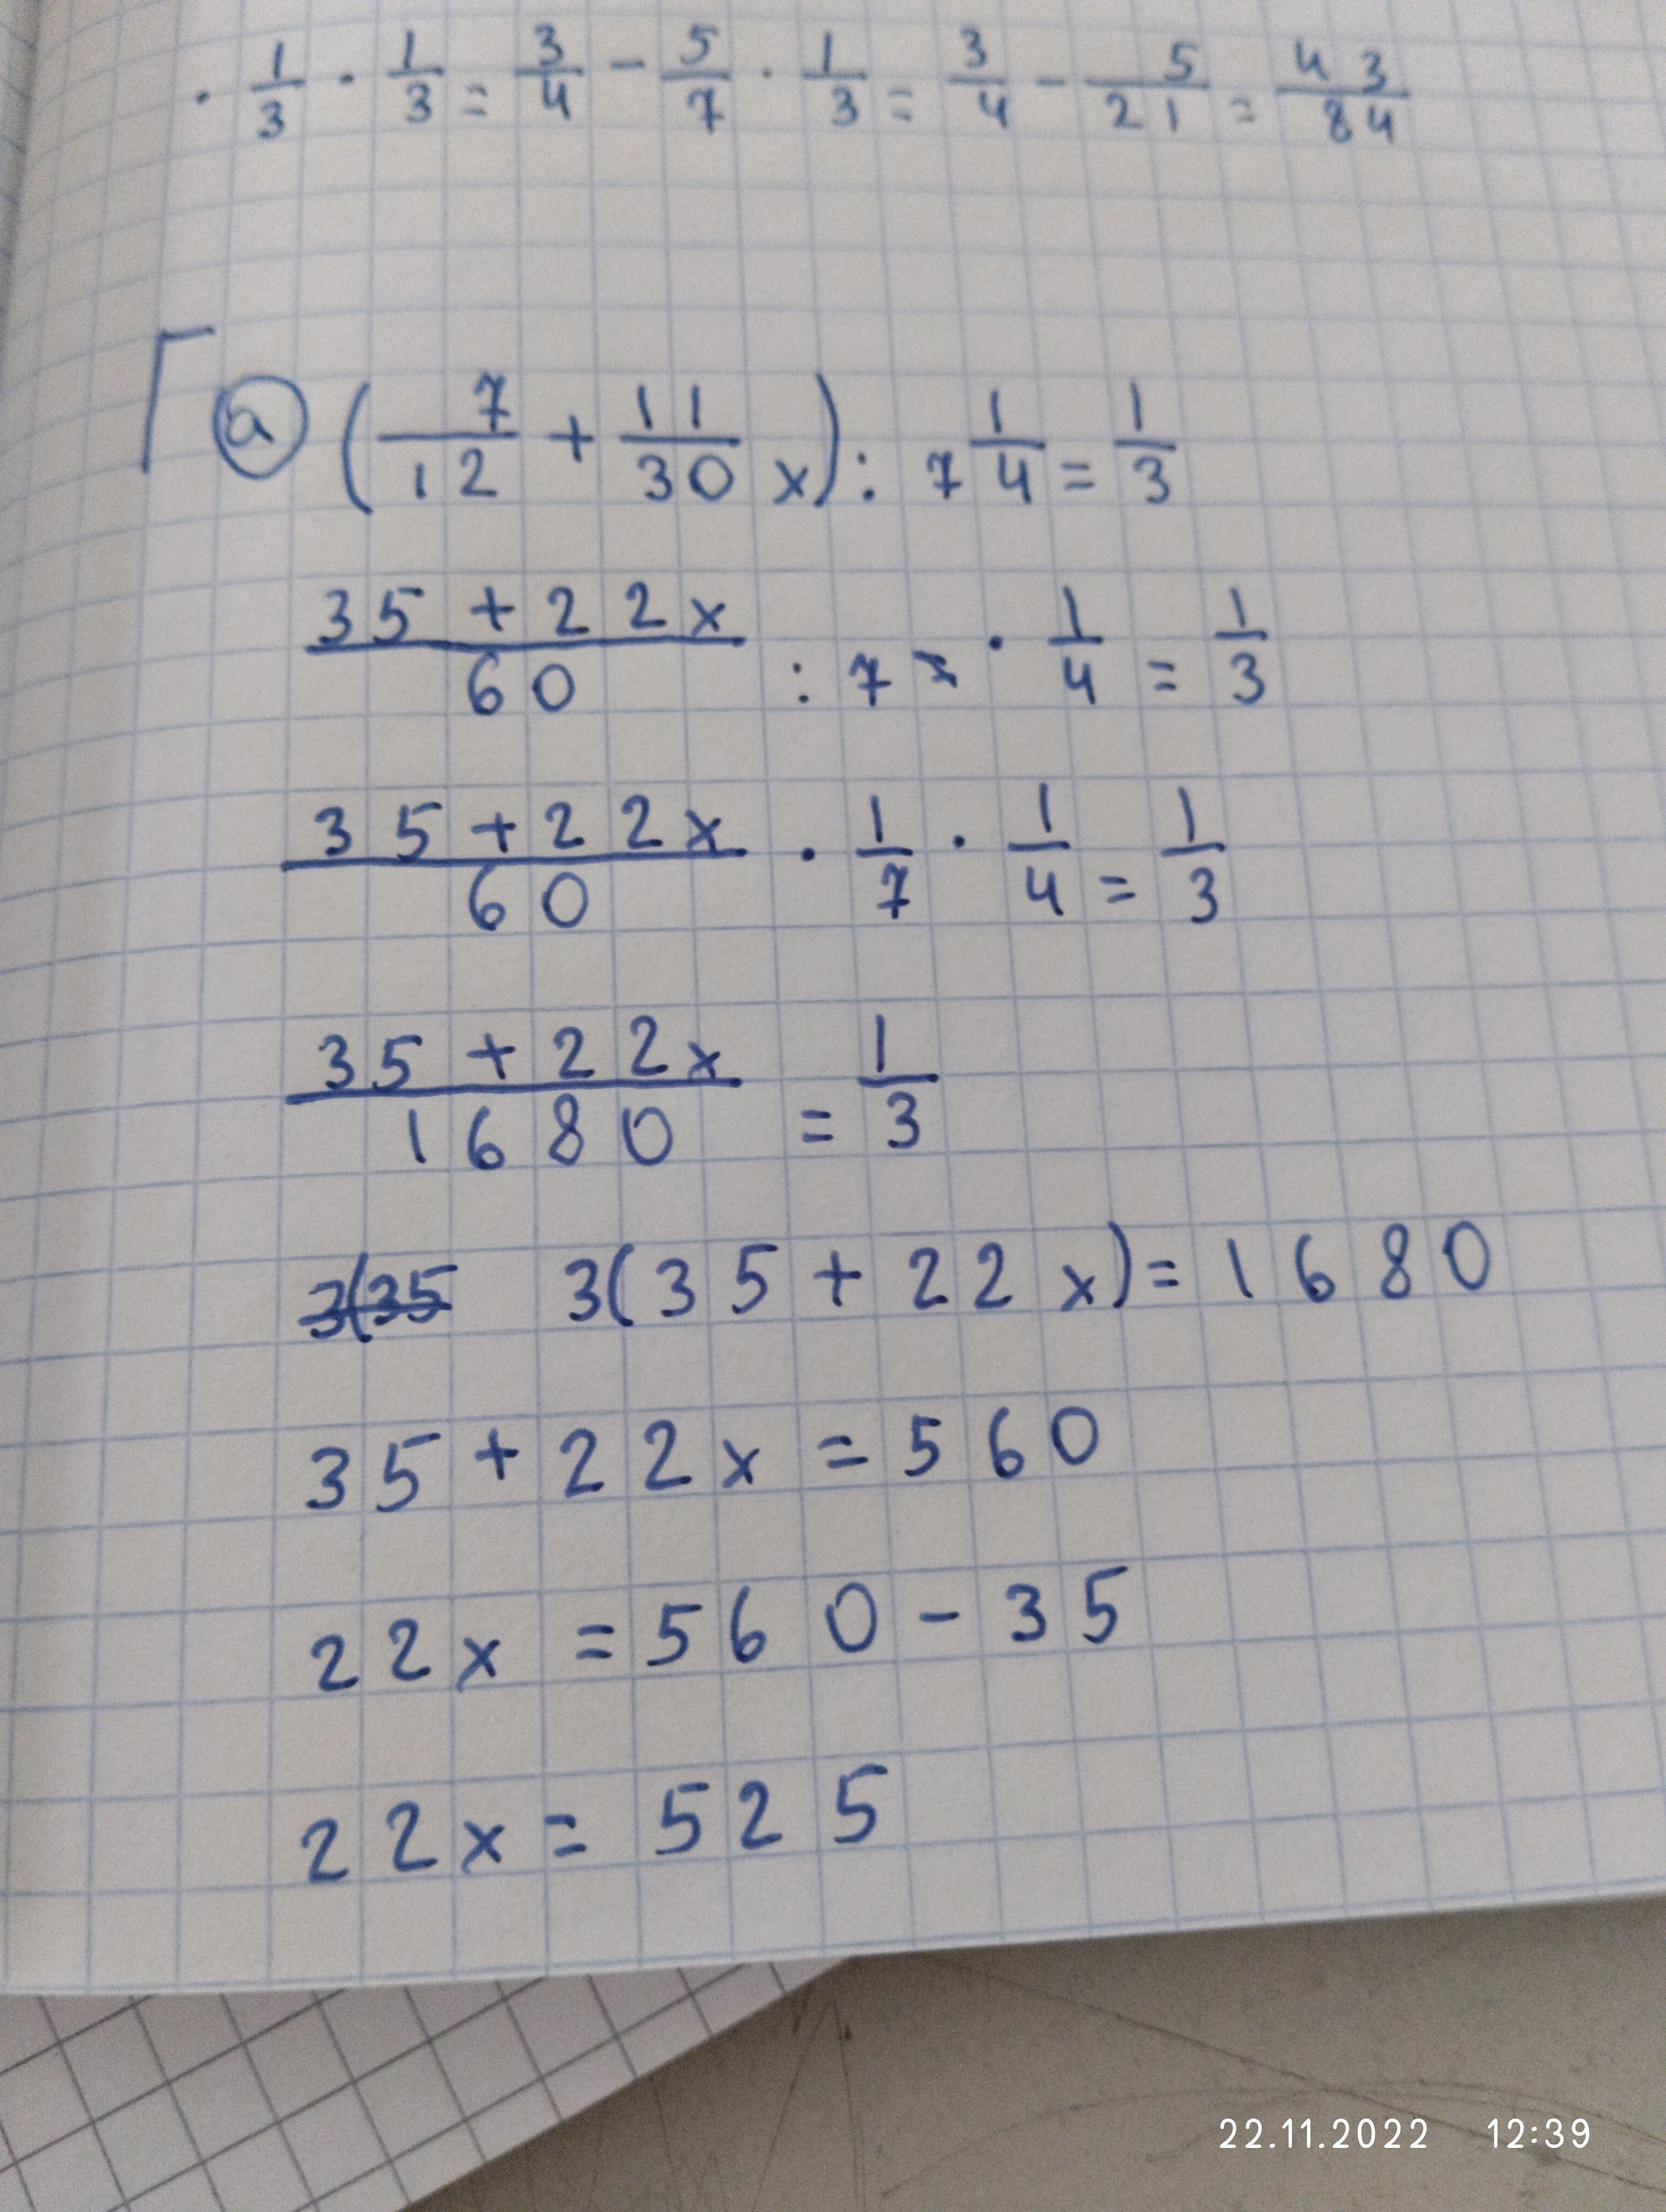 · 1/3 · 1/3 = 3/4 - 5/7 · 1/3 = 3/4 - 5/21 = 43/84
a (7/12 + 11/30 x) : 7 1/4 = 1/3
35 + 22x / 60 : 7 · 1/4 = 1/3
35 + 22x / 60 · 1/7 · 1/4 = 1/3
35 + 22x / 1680 = 1/3
3(35 3(35 + 22x) = 1680
35 + 22x = 560
22x = 560 - 35
22x = 525
22.11.2022 12:39